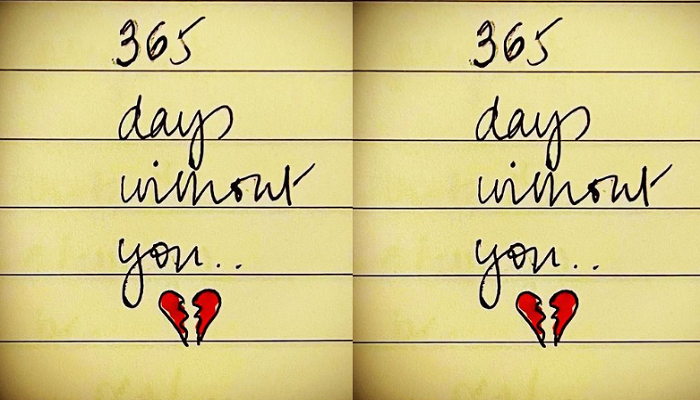 365
days
without
you..
365
days
without
you..